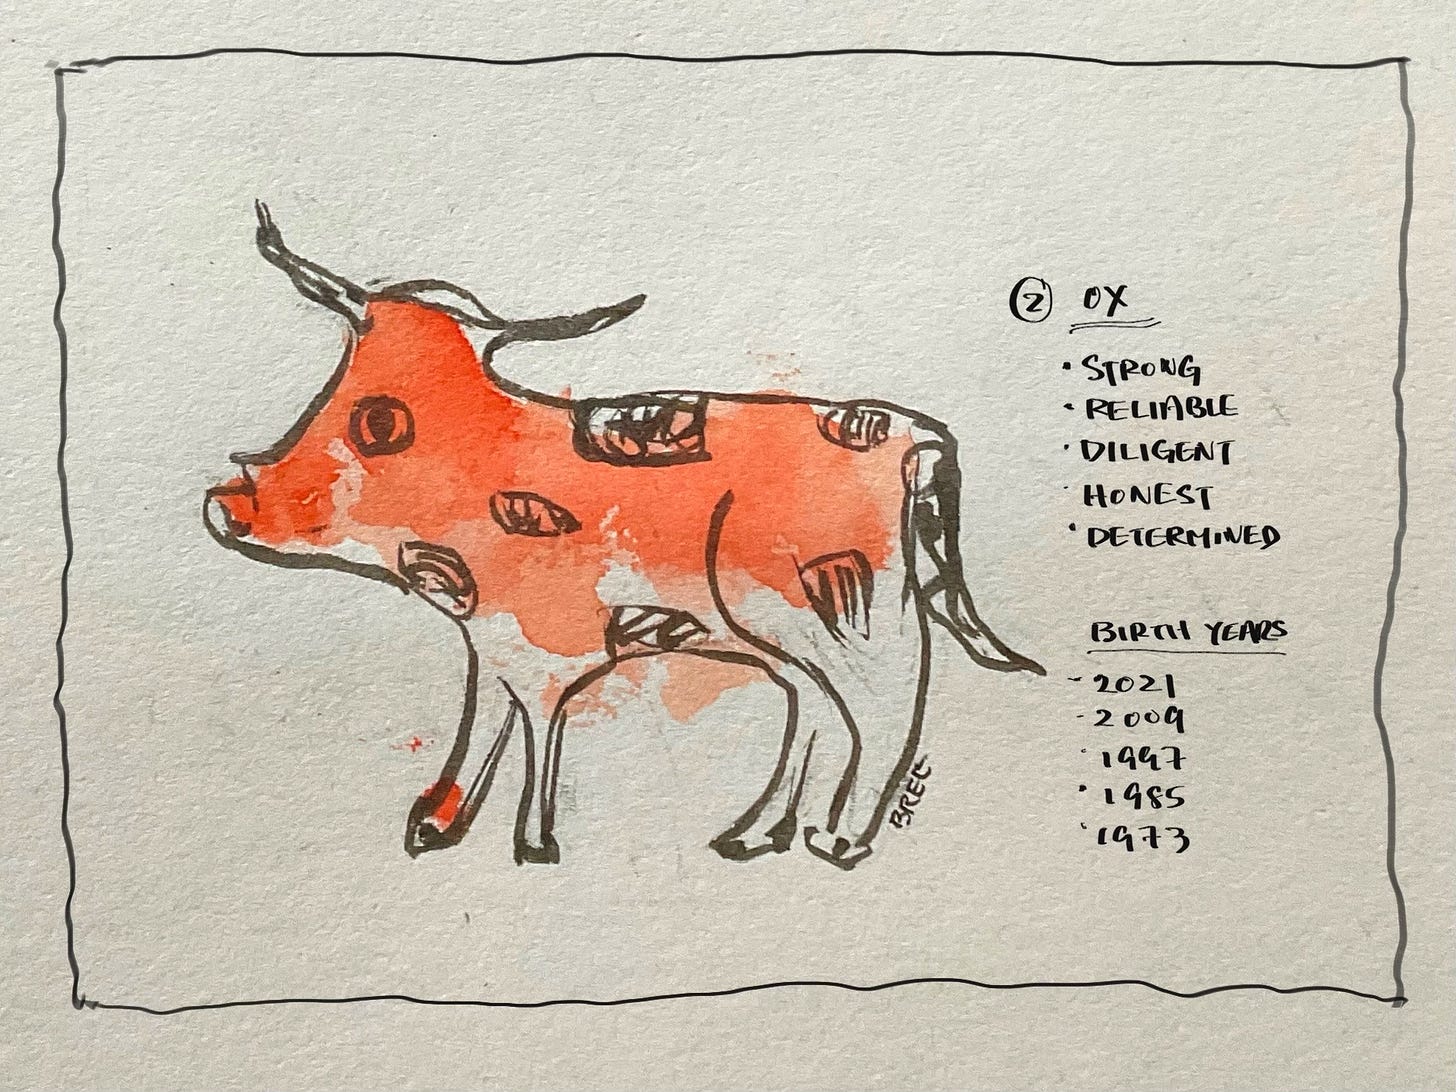 ② OX
• STRONG
• RELIABLE
• DILIGENT
• HONEST
• DETERMINED
BIRTH YEARS
- 2021
- 2009
• 1997
• 1985
• 1973